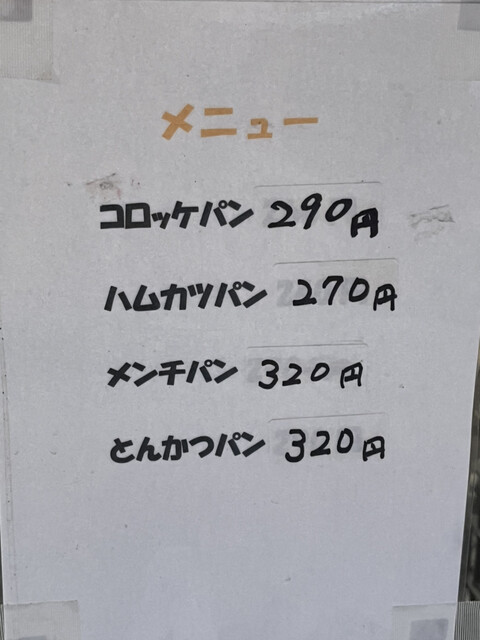 メニュー
コロッケパン 290円
ハムカツパン 270円
メンチパン 320円
とんかつパン 320円